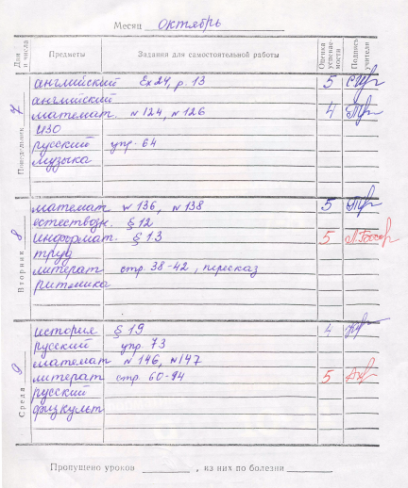 Месяц октябрь
Дни и числа Предметы Задания для самостоятельной работы Оценка успеваемости Подпись учителя
Понедельник 7
английский Ex 24, p. 13 5
английский
математ. № 124, № 126 4
ИЗО
русский упр. 64
музыка
Вторник 8
математ № 136, № 138 5
естествозн. § 12
информат. § 13 5
труд
литерат стр. 38-42, пересказ
ритмика
Среда 9
история § 19 4
русский упр. 73
математ № 146, № 147
литерат стр. 60-94 5
русский
физкульт
Пропущено уроков , из них по болезни